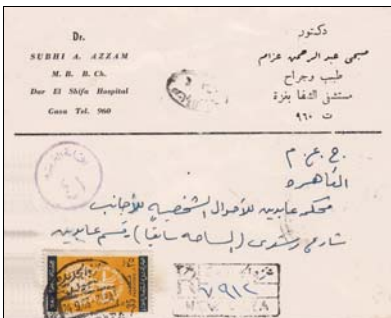 Dr.
SUBHI A. AZZAM
M. B. B. Ch.
Dar El Shifa Hospital
Gaza Tel. 960
دكتور
صبحي عبد الرحمن عزام
طبيب وجراح
مستشفى الشفا بغزة
ت ٩٦٠
ج. ع. م
القاهرة
محكمة عابدين للأحوال الشخصية للأجانب
شارع رشدى (الساحه سابقاً) قسم عابدين
٧٩١٢